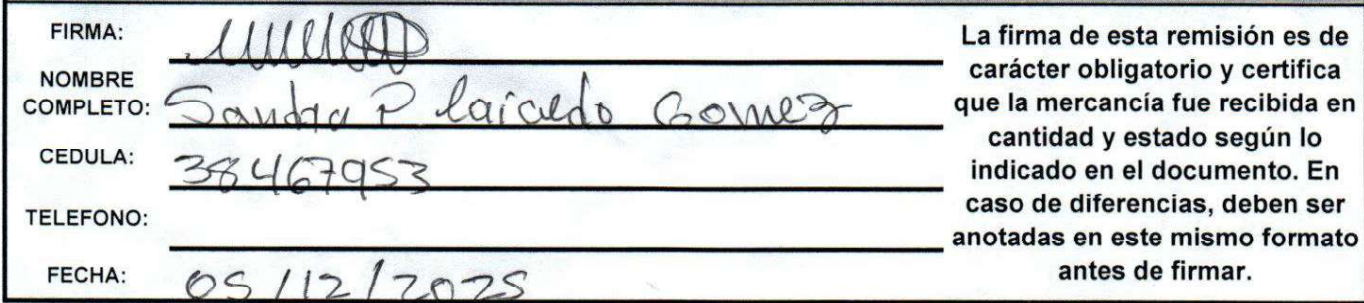 FIRMA:
NOMBRE COMPLETO: Sandra P Caicedo Gomez
CEDULA: 38467953
TELEFONO:
FECHA: 05/12/2025
La firma de esta remisión es de
carácter obligatorio y certifica
que la mercancía fue recibida en
cantidad y estado según lo
indicado en el documento. En
caso de diferencias, deben ser
anotadas en este mismo formato
antes de firmar.